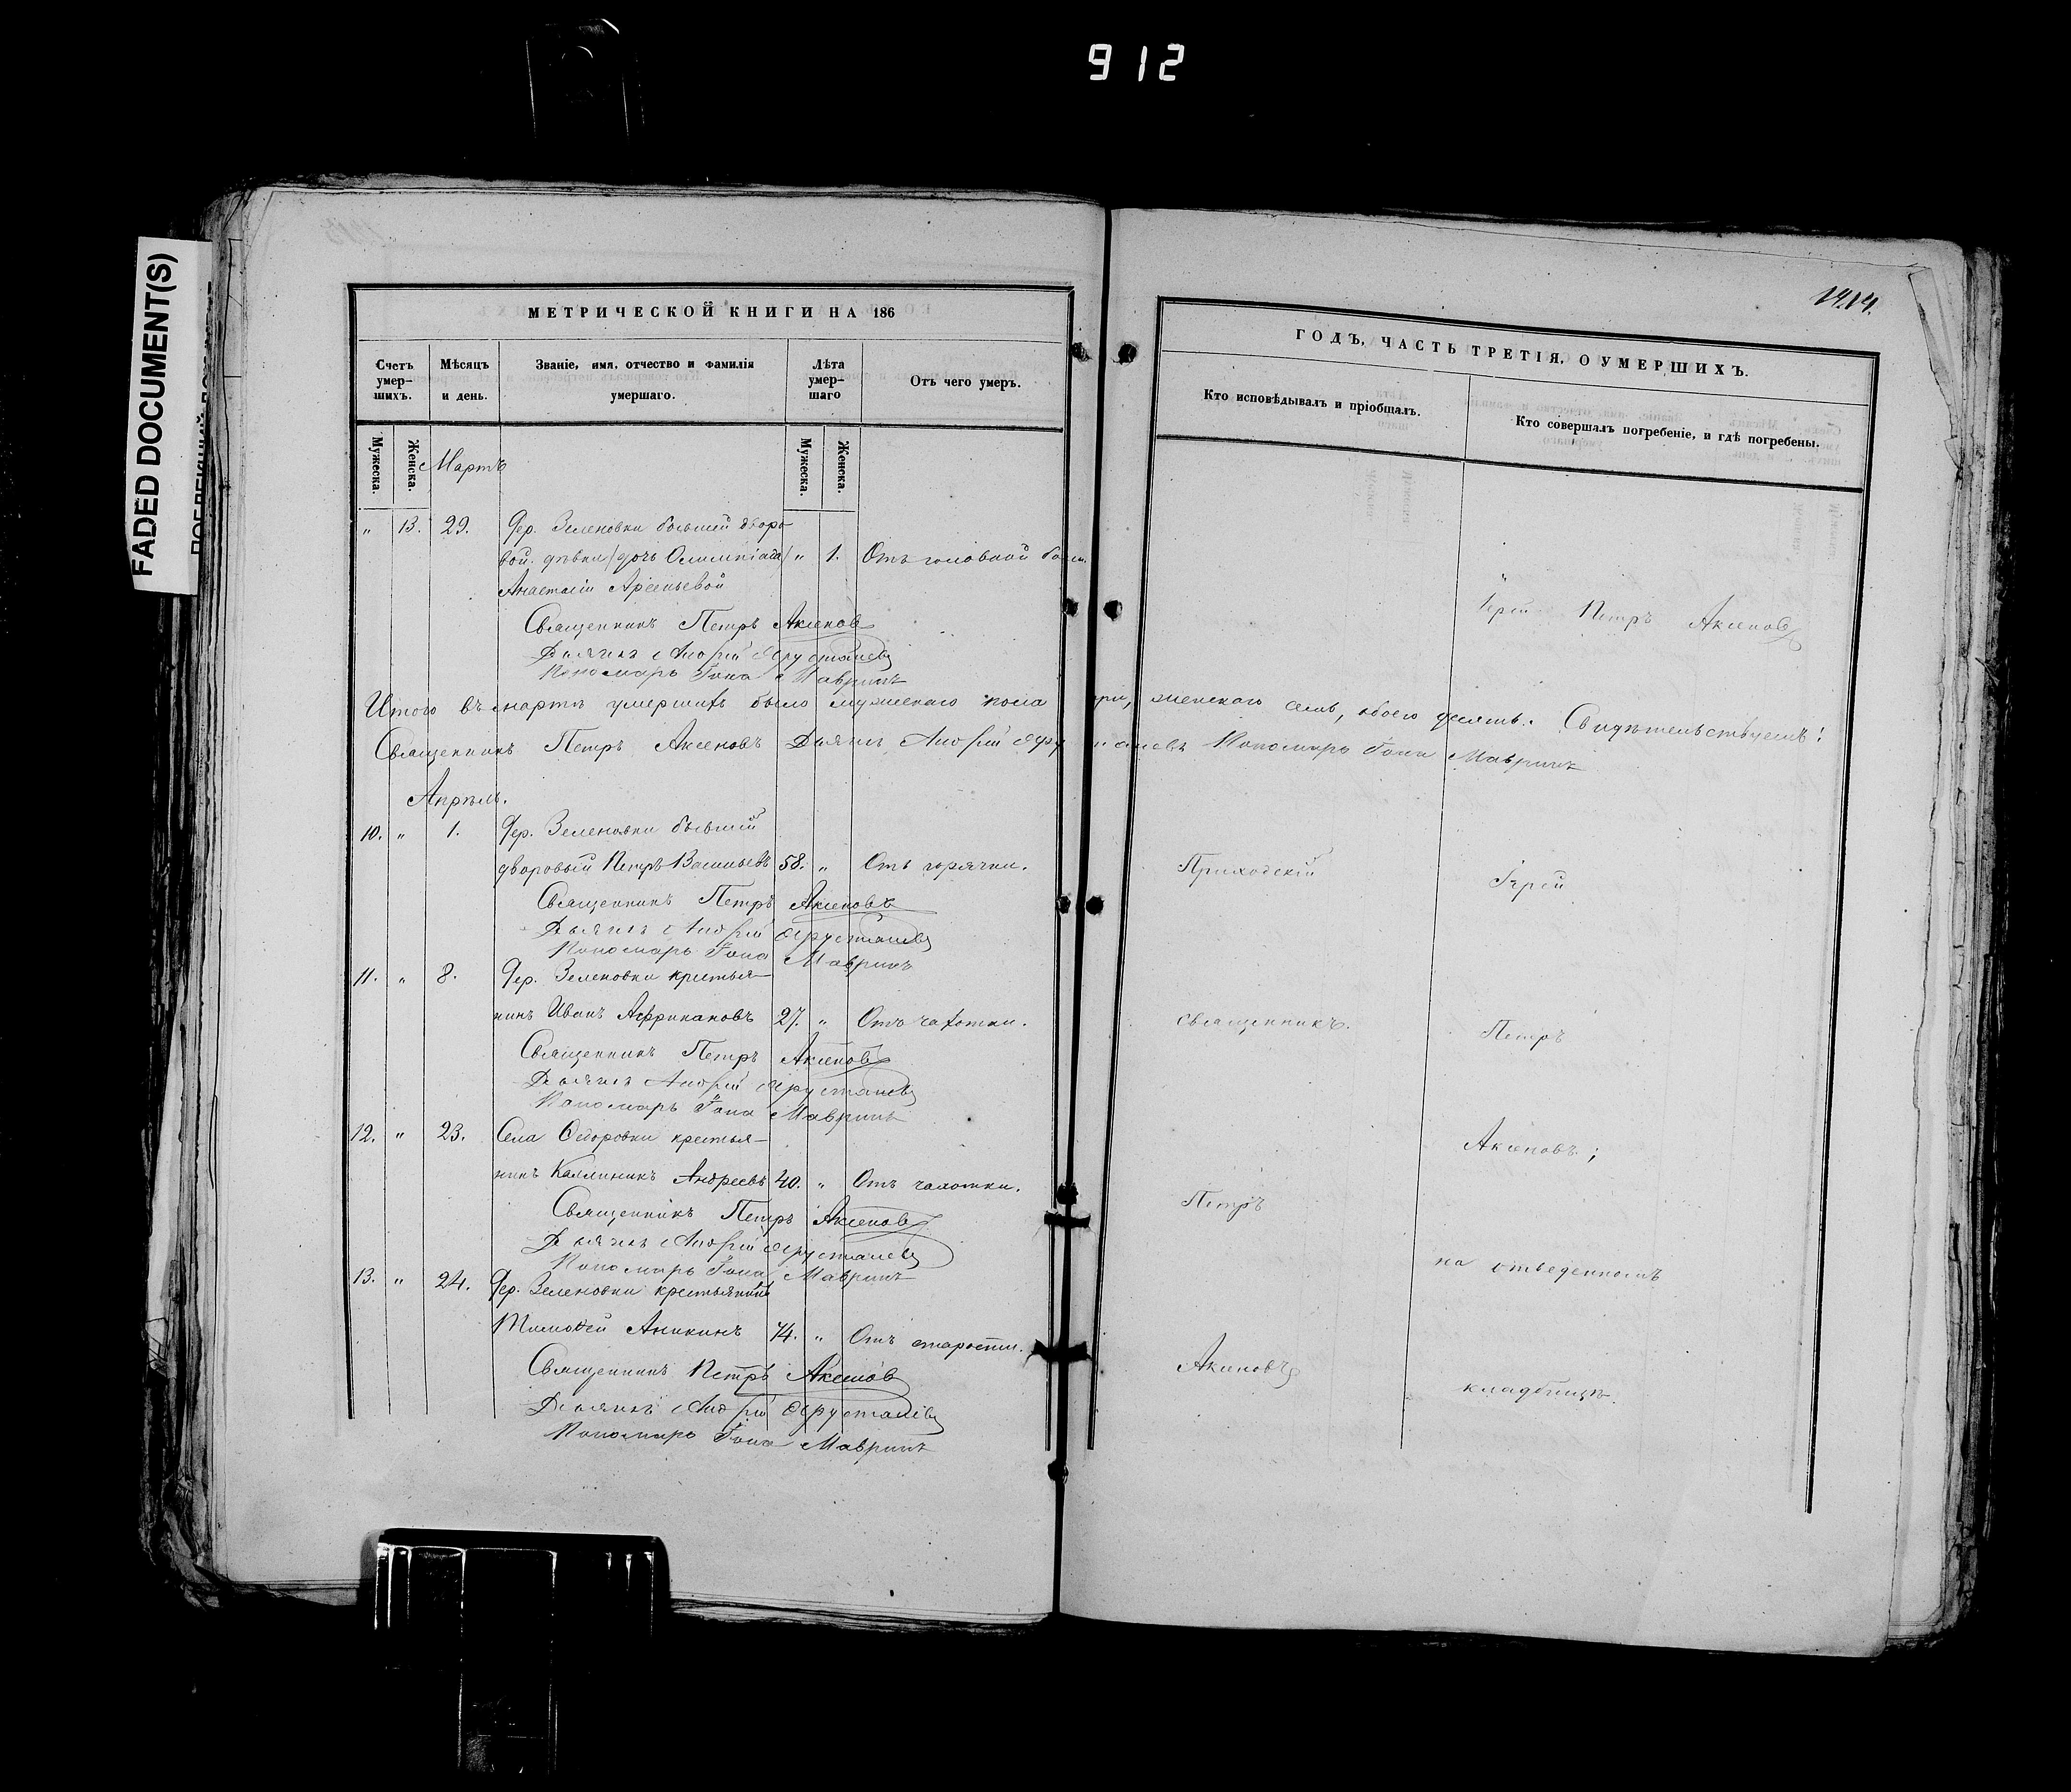 912
FADED DOCUMENT(S)
1414.
МЕТРИЧЕСКОЙ КНИГИ НА 186
Счетъ умер-шихъ.
Мѣсяцъ и день.
Званіе, имя, отчество и фамилія умершаго.
Лѣта умер-шаго
Отъ чего умеръ.
Мужеска.
Женска.
Мужеска.
Женска.
Мартъ
" 13. 29. Дер. Зеленовки бывшей дворо-
вой дѣвки (дочь Олимпіада) " 1. Отъ головной боли.
Анастасіи Арсеньевой
Священникъ Петръ Аксеновъ
Дьячекъ Андрей Хрусталевъ
Пономарь Іона Мавринъ
Итого въ мартѣ умершихъ было мужескаго пола три, женскаго семь, обоего десять. Свидѣтельствуемъ:
Священникъ Петръ Аксеновъ Дьячекъ Андрей Хрусталевъ Пономарь Іона Мавринъ
Апрѣль.
10. " 1. Дер. Зеленовки бывшій
дворовый Петръ Васильевъ 58. " Отъ горячки.
Священникъ Петръ Аксеновъ
Дьячекъ Андрей Хрусталевъ
Пономарь Іона Мавринъ
11. " 8. Дер. Зеленовки крестья-
нинъ Иванъ Африкановъ 27. " Отъ чахотки.
Священникъ Петръ Аксеновъ
Дьячекъ Андрей Хрусталевъ
Пономарь Іона Мавринъ
12. " 23. Села Ѳедоровки крестья-
нинъ Каллиникъ Андреевъ 40. " Отъ чахотки.
Священникъ Петръ Аксеновъ
Дьячекъ Андрей Хрусталевъ
Пономарь Іона Мавринъ
13. " 24. Дер. Зеленовки крестьянинъ
Тимоѳей Аникинъ 74. " Отъ старости.
Священникъ Петръ Аксеновъ
Дьячекъ Андрей Хрусталевъ
Пономарь Іона Мавринъ
ГОДЪ, ЧАСТЬ ТРЕТІЯ, О УМЕРШИХЪ.
Кто исповѣдывалъ и пріобщалъ.
Кто совершалъ погребеніе, и гдѣ погребены.
Іерей Петръ Аксеновъ
Приходскій
Іерей
священникъ.
Петръ
Аксеновъ;
Петръ
на отведенномъ
Аксеновъ
кладбищѣ.